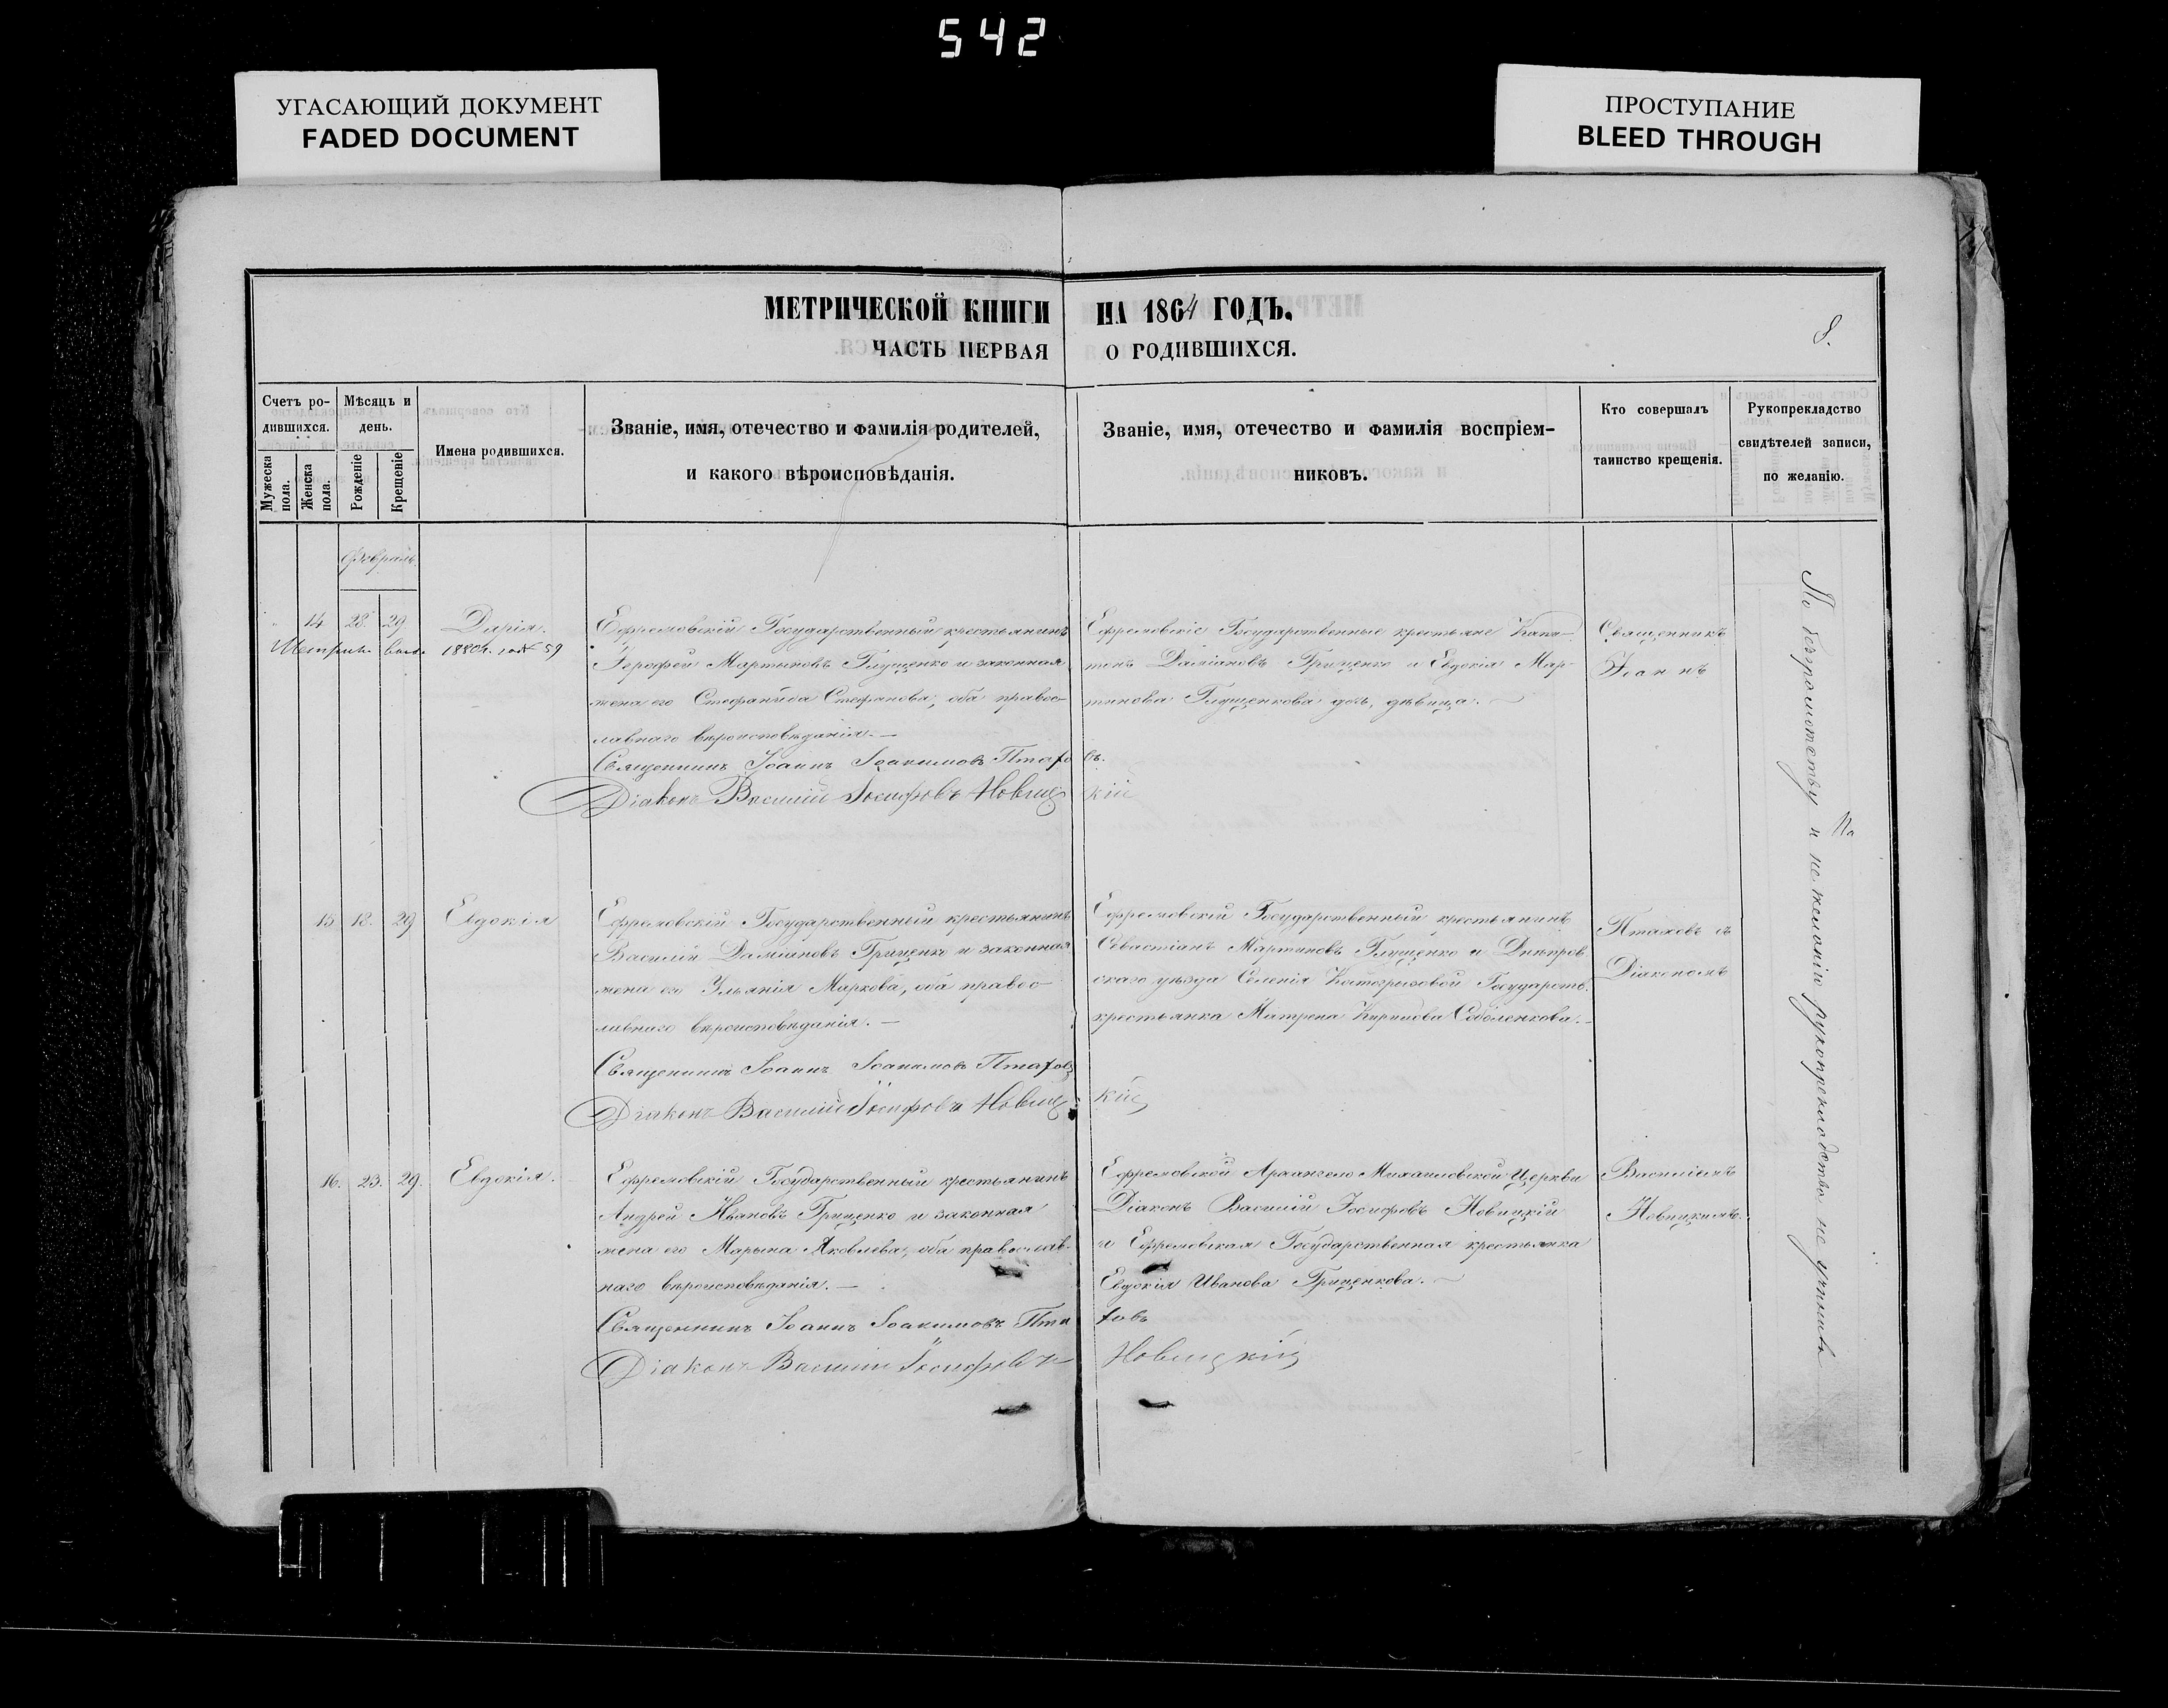 542
УГАСАЮЩИЙ ДОКУМЕНТ
FADED DOCUMENT
ПРОСТУПАНИЕ
BLEED THROUGH
МЕТРИЧЕСКОЙ КНИГИ НА 1864 ГОДЪ.
ЧАСТЬ ПЕРВАЯ О ГОДИВШИХСЯ.
8.
Счетъ ро-
дившихся.
Мужеска пола.
Женска пола.
Мѣсяцъ и
день.
Рожденіе
Крещеніе
Имена родившихся.
Званіе, имя, отечество и фамилія родителей,
и какого вѣроисповѣданія.
Званіе, имя, отечество и фамилія воспріем-
никовъ.
Кто совершалъ
таинство крещенія.
Рукопрекладство
свидѣтелей записи,
по желанію.
Февраль
14 28. 29 Дарія.
1880 г. 59
Ефремовскій Государственный крестьянинъ
Іерофей Мартиновъ Глущенко и законная
жена его Стефанида Стефанова, оба правос-
лавнаго вѣроисповѣданія. —
Священникъ Іоаннъ Іоакимовъ Птаховъ.
Діаконъ Василій Іосифовъ Новицкій
Ефремовскіе Государственные крестьяне
Даміановъ Грищенко и Евдокія Мар-
тинова Глущенкова дѣвица.
Священникъ
Іоаннъ
15 18. 29 Евдокія
Ефремовскій Государственный крестьянинъ
Василій Даміановъ Грищенко и законная
жена его Ульянія Маркова, оба правос-
лавнаго вѣроисповѣданія. —
Священникъ Іоаннъ Іоакимовъ Птаховъ
Діаконъ Василій Іосифовъ Новицкій
Ефремовскій Государственный крестьянинъ
Севастіанъ Мартиновъ Глущенко и Днѣпров
скаго уѣзда Селенія Костогрызовой Государств.
крестьянка Матрена Кирилова Соболенкова. —
Птаховъ съ
Діакономъ
16. 23. 29. Евдокія.
Ефремовскій Государственный крестьянинъ
Андрей Ивановъ Грищенко и законная
жена его Марына Яковлева, оба православ-
наго вѣроисповѣданія. —
Священникъ Іоаннъ Іоакимовъ Птаховъ
Діаконъ Василій Іосифовъ Новицкій
Ефремовской Архангело Михаиловской Церкви
Діаконъ Василій Іосифовъ Новицкій
и Ефремовская Государственная крестьянка
Евдокія Иванова Грищенкова.
Василіемъ
Новицкимъ.
По безграмотству и не желанію рукоприкладство не учинили